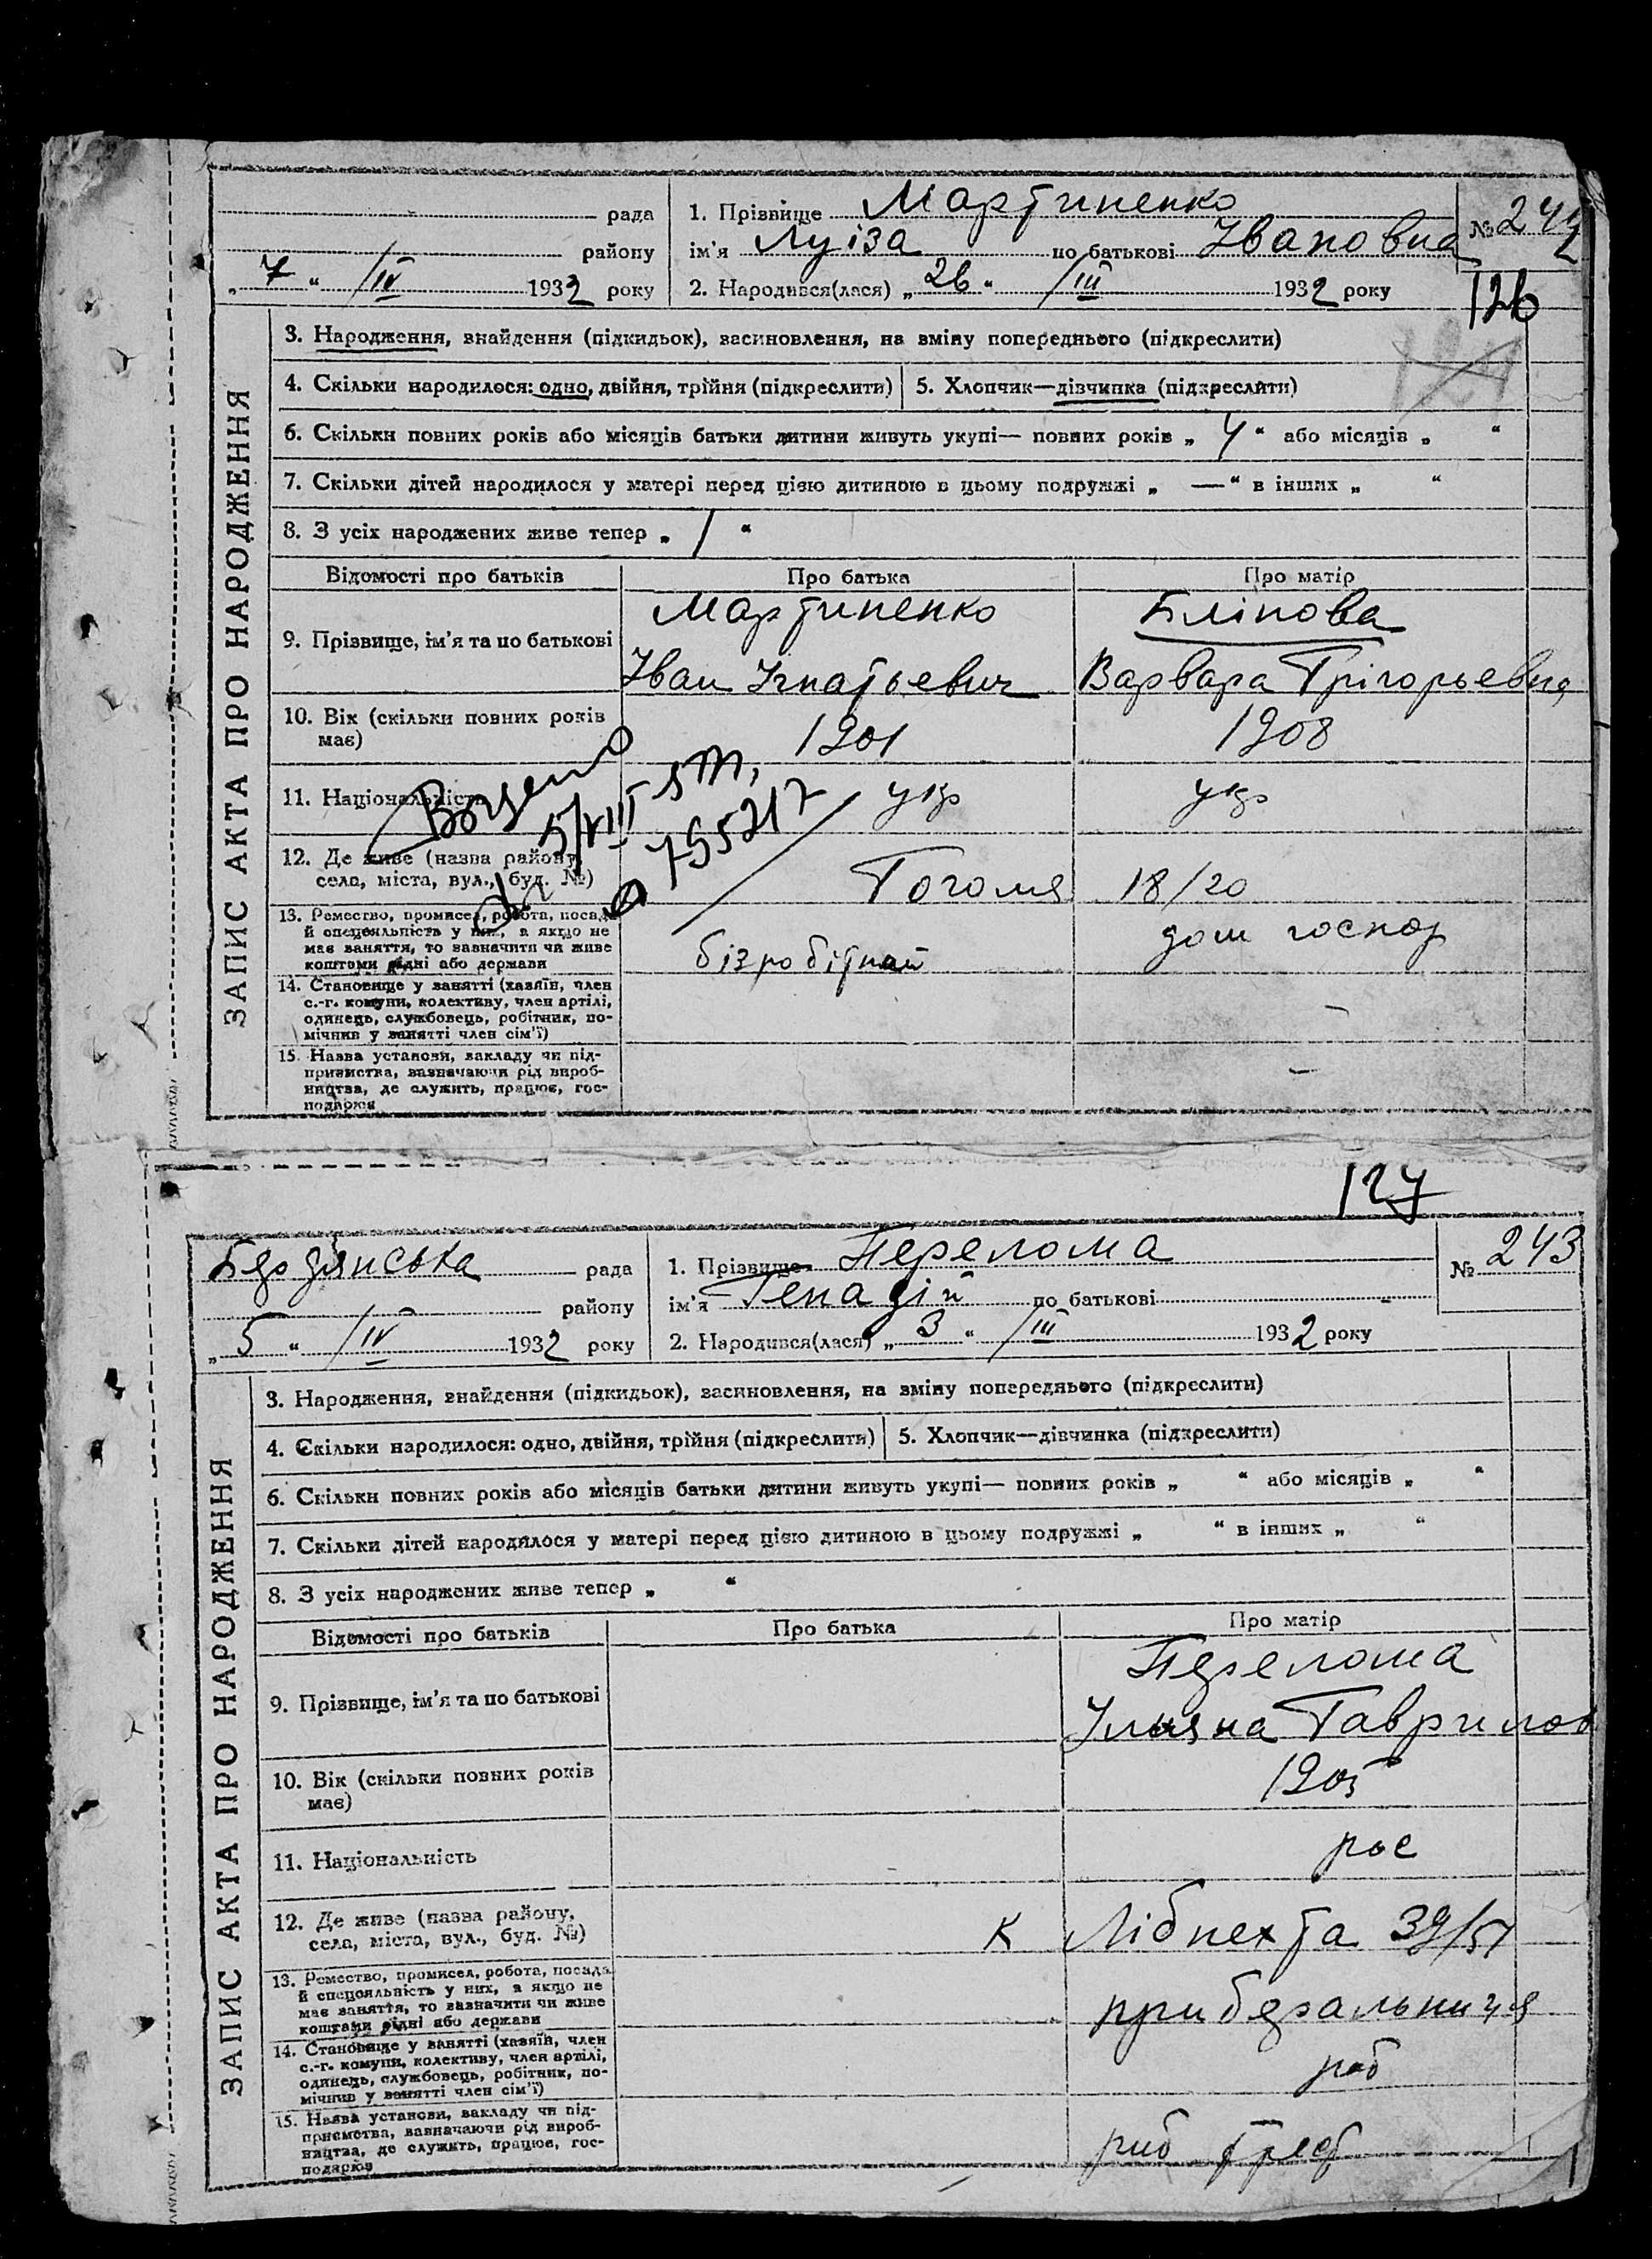 рада
району
„ 7 “ /IV 1932 року
1. Прізвище Мартиненко
ім'я Луіза по батькові Івановна
2. Народився(лася) „ 26 “ /III 1932 року
№ 242
126
ЗАПИС АКТА ПРО НАРОДЖЕННЯ
3. Народження, знайдення (підкидьок), засиновлення, на зміну попереднього (підкреслити)
4. Скільки народилося: одно, двійня, трійня (підкреслити) 5. Хлопчик—дівчинка (підкреслити)
6. Скільки повних років або місяців батьки дитини живуть укупі— повних років „ 4 “ або місяців „ “
7. Скільки дітей народилося у матері перед цією дитиною в цьому подружжі „ — “ в інших „ “
8. З усіх народжених живе тепер „ 1 “
Відомості про батьків Про батька Про матір
9. Прізвище, ім'я та по батькові
Мартиненко
Іван Ігнатьевич
Блінова
Варвара Грігорьевна
10. Вік (скільки повних років
має)
1901 1908
11. Національність укр укр
12. Де живе (назва району,
села, міста, вул., буд. №)
Гоголя 18/20
13. Ремество, промисел, робота, посада
й спеціяльність у них, а якщо не
має заняття, то зазначити чи живе
коштами рідні або держави
безробітний
дом господ
14. Становище у занятті (хазяїн, член
с.-г. комуни, колективу, член артілі,
одинець, службовець, робітник, по-
мічник у занятті член сім'ї)
–
15. Назва установи, закладу чи під-
приємства, зазначаючи рід вироб-
ництва, де служить, працює, гос-
подарює
–
5/VIII
755217
127
Бердянська рада
району
„ 5 “ /IV 1932 року
1. Прізвище Перелома
ім'я Генадій по батькові –
2. Народився(лася) „ 3 “ /III 1932 року
№ 243
ЗАПИС АКТА ПРО НАРОДЖЕННЯ
3. Народження, знайдення (підкидьок), засиновлення, на зміну попереднього (підкреслити)
4. Скільки народилося: одно, двійня, трійня (підкреслити) 5. Хлопчик—дівчинка (підкреслити)
6. Скільки повних років або місяців батьки дитини живуть укупі— повних років „ “ або місяців „ “
7. Скільки дітей народилося у матері перед цією дитиною в цьому подружжі „ “ в інших „ “
8. З усіх народжених живе тепер „ “
Відомості про батьків Про батька Про матір
9. Прізвище, ім'я та по батькові
Перелома
Ульяна Гаврилов
10. Вік (скільки повних років
має)
1905
11. Національність рос
12. Де живе (назва району,
села, міста, вул., буд. №)
К Лібнехта 39/51
13. Ремество, промисел, робота, посада
й спеціяльність у них, а якщо не
має заняття, то зазначити чи живе
коштами рідні або держави
приберальниця
14. Становище у занятті (хазяїн, член
с.-г. комуни, колективу, член артілі,
одинець, службовець, робітник, по-
мічник у занятті член сім'ї)
роб
15. Назва установи, закладу чи під-
приємства, зазначаючи рід вироб-
ництва, де служить, працює, гос-
подарює
риб трест